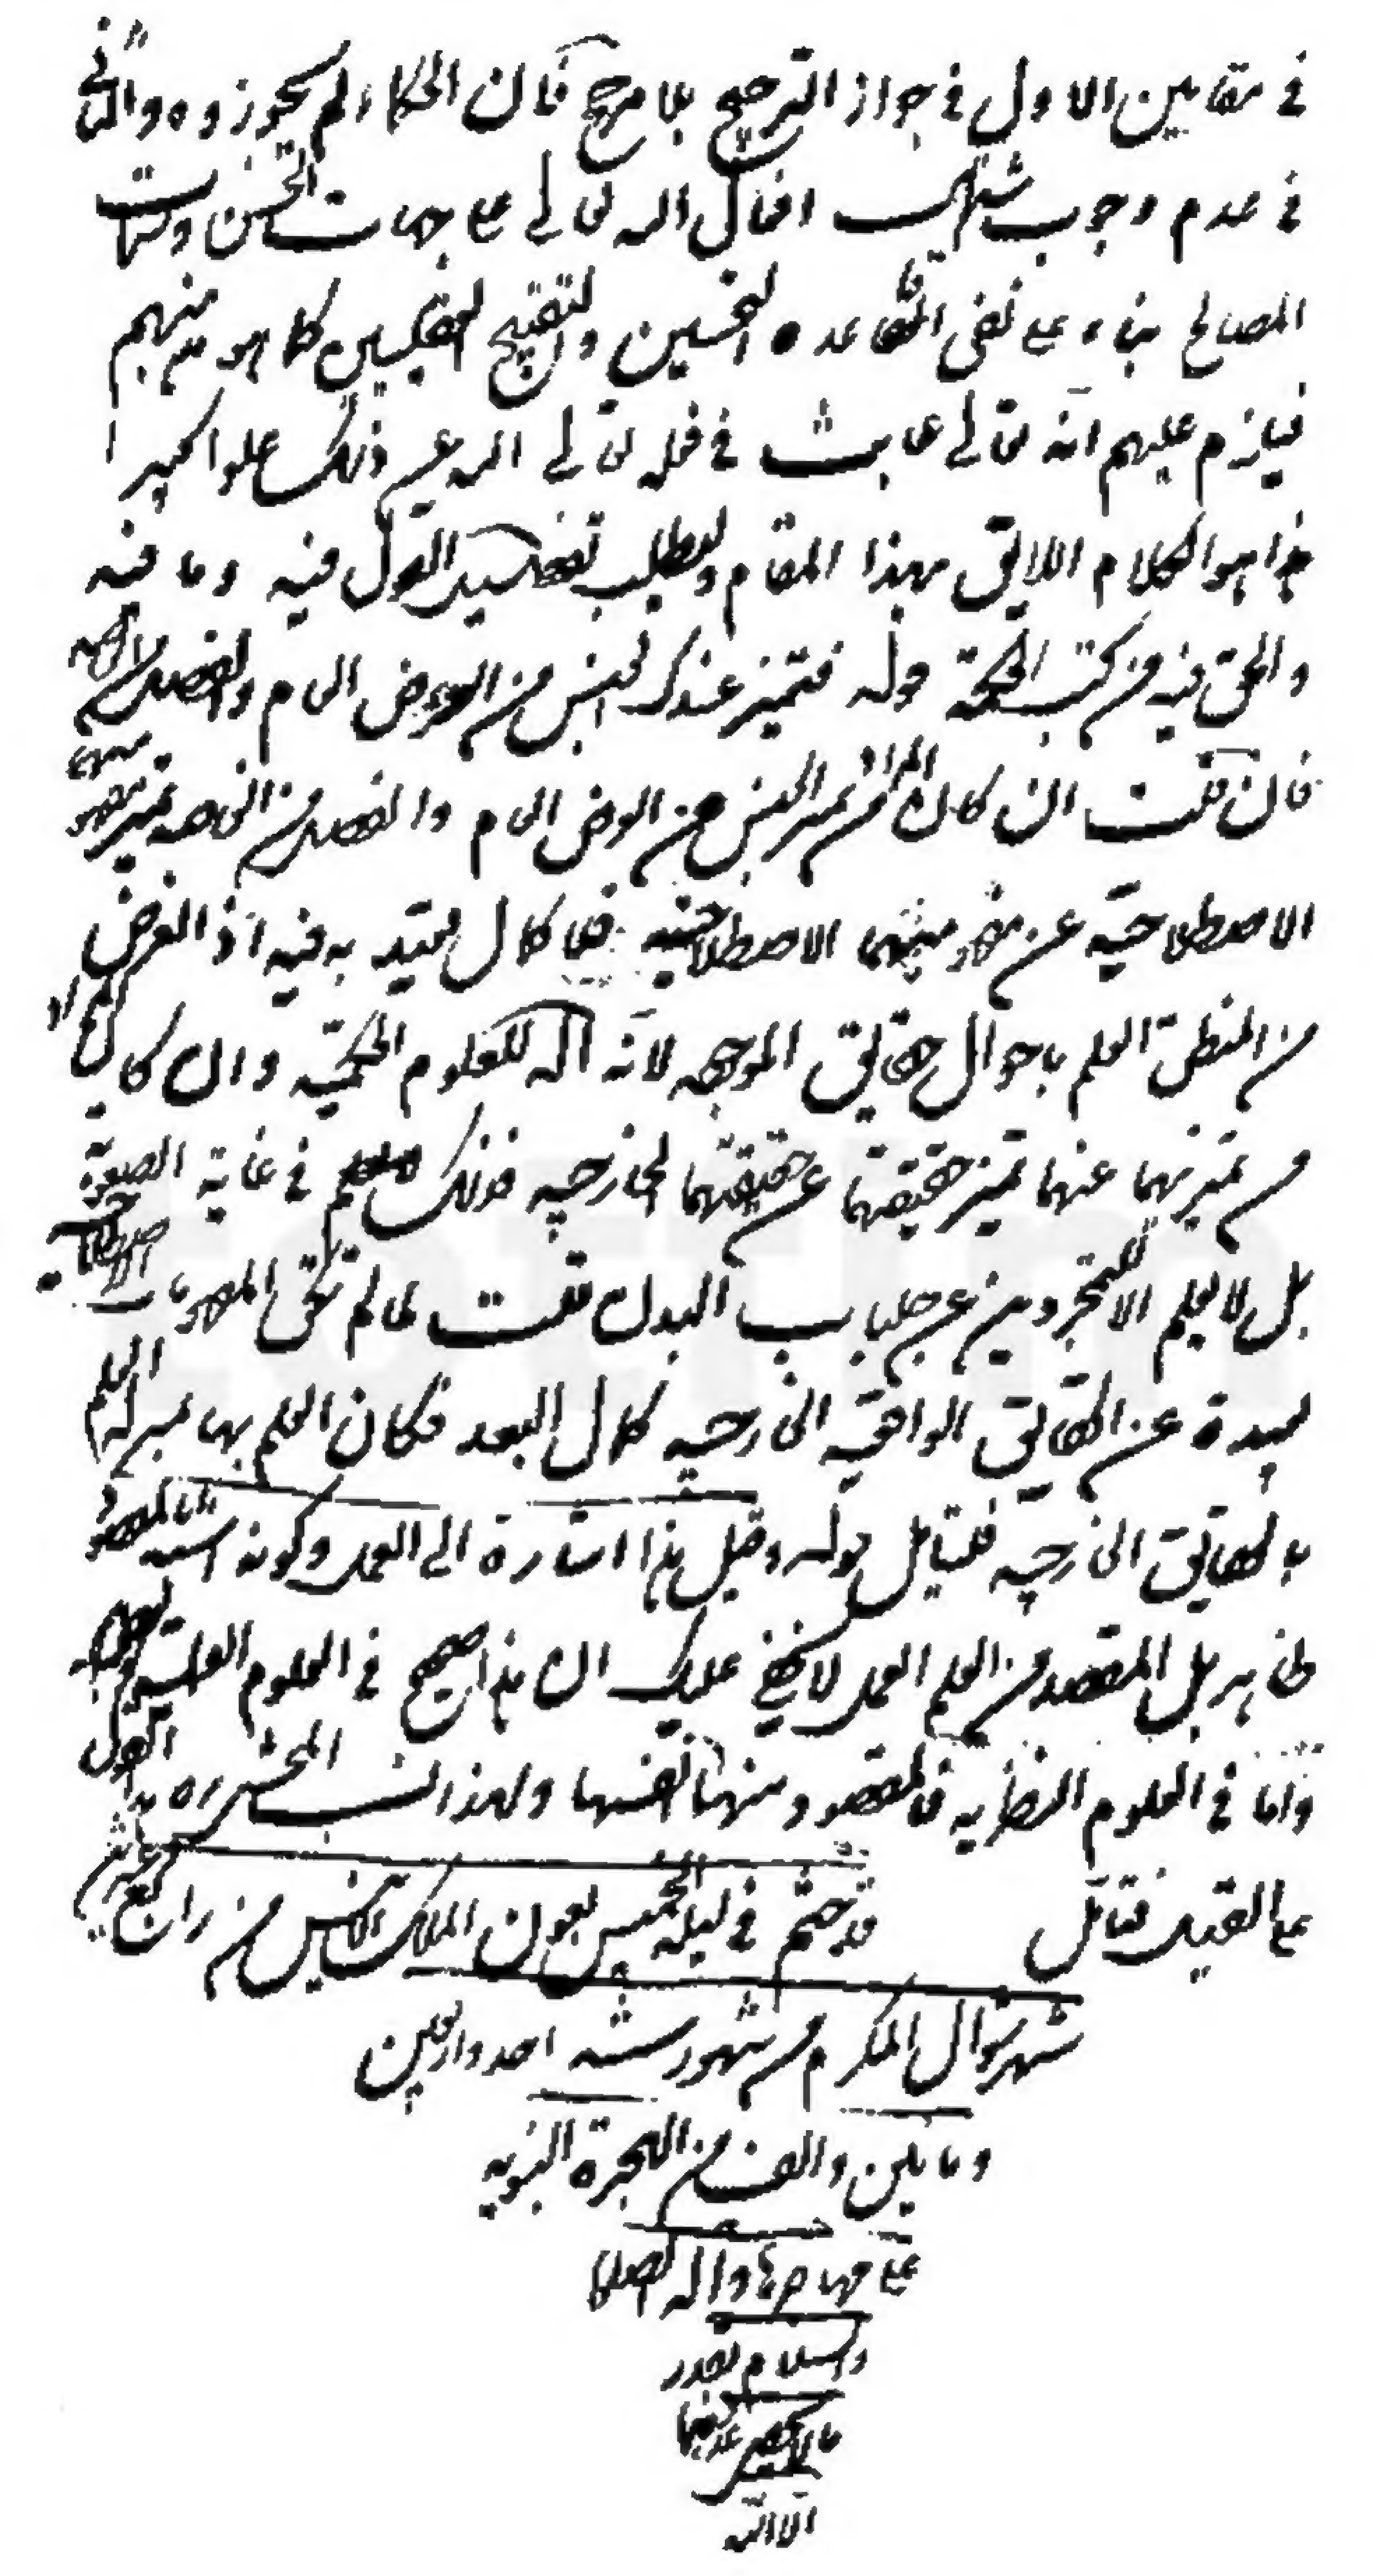 في مقامين الاول في جواز الترجيح بلا مرجح فان الحكماء لم يجوزوه والثاني
في عدم وجوب افعال الله تعالى على جهات الحسن و
المصالح بناء على نفي القاعدة التحسين والتقبيح العقليين كما هو منهم
فيلزم عليهم انه تعالى عابث في فعله تعالى الله عن ذلك علوا كبيرا
هذا هو الكلام اللايق بهذا المقام وليطلب تفصيل القول فيه وما فيه
والحق فيه من كتب الحكمة قوله فتميز عندك الجنس من العرض العام والفصل من الخاصة
فان قلت ان كان المراد من تميز الجنس عن العرض العام والفصل من الخاصة تميز مفهوميهما
الاصطلاحية عن مفهوميهما الاصطلاحية فلا كمال يعتد به فيه اذ الغرض
من المنطق العلم باحوال حقايق الموجبه لانه اله للعلوم الحكمية وان كان المراد
من تميزهما عنهما تميز حقيقتهما عن حقيقتهما الخارجيه فذلك في غاية الصعوبة
بل لا يعلم الا للمتجردين عن جلباب البدن قلت لما لم تكن المفهومات الاصطلاحية
بعيدة عن الحقايق الواقعية الخارجيه كمال البعد فكان العلم بها بمنزلة العلم
بالحقايق الخارجيه فليتامل قوله وقيل هذا اشارة الى العمل وكونه اشبه بالمقصود
ظاهر بل المقصد من العلم العمل لا يخفى عليك ان هذا صحيح في العلوم العملية
واما في العلوم النظريه فالمقصود منها انفسها ولهذا نسب المحشي ره هذا القول
على القيل فتامل قد ختم في ليله الخميس بعون الملك من رابع عشر
شهر شوال المكرم من شهور سنه احد واربعين
وماتين والف من الهجرة النبويه
على مهاجرها واله الصلاة
والسلام بعدد
ما لا يحصى عددها
الا الله